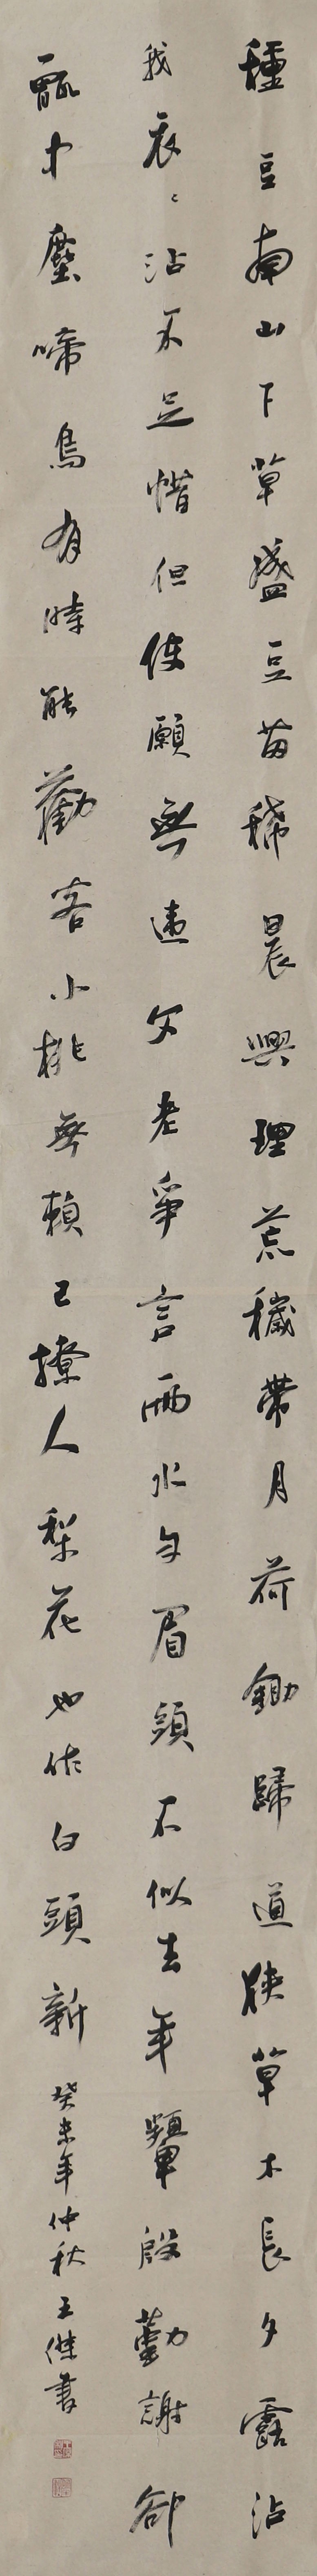 種豆南山下草盛豆苗稀晨興理荒穢帶月荷鋤歸道狹草木長夕露沾
我衣衣沾不足惜但使願無違父老爭言雨水勻眉頭不似去年顰殷勤謝卻
甑中塵啼鳥有時能勸客小桃無賴已撩人梨花也作白頭新癸未年仲秋王傑書